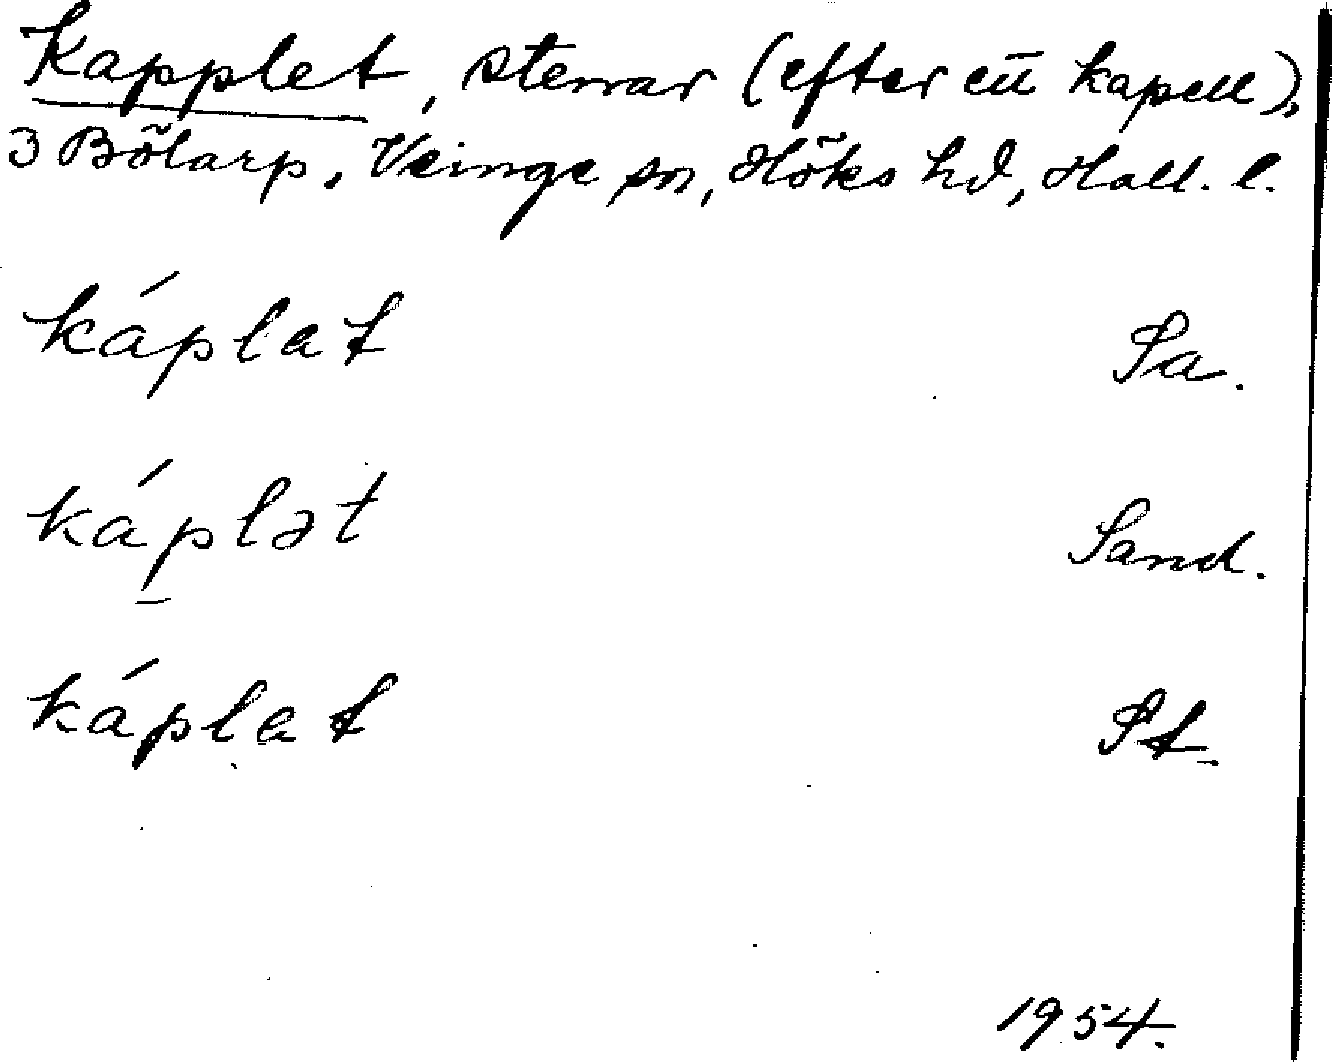 Kapplet, stenar (efter ett kapell),
3 Bölarp, Veinge sn, Höks hd, Hall. l.
káplat Sa.
káplət Sand.
káplat St.
1954.